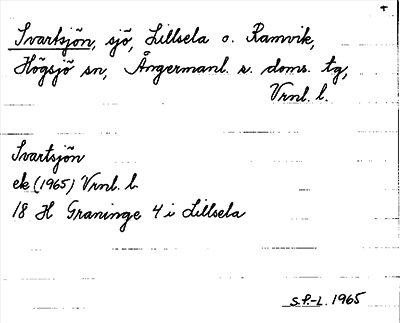 +
Svartsjön, sjö, Lillsela o. Ramvik,
Högsjö sn, Ångermanl. s. doms. tg,
Vrnl. l.
Svartsjön
ek (1965) Vrnl. l.
18 H Graninge 4 i Lillsela
S.P.-L. 1965